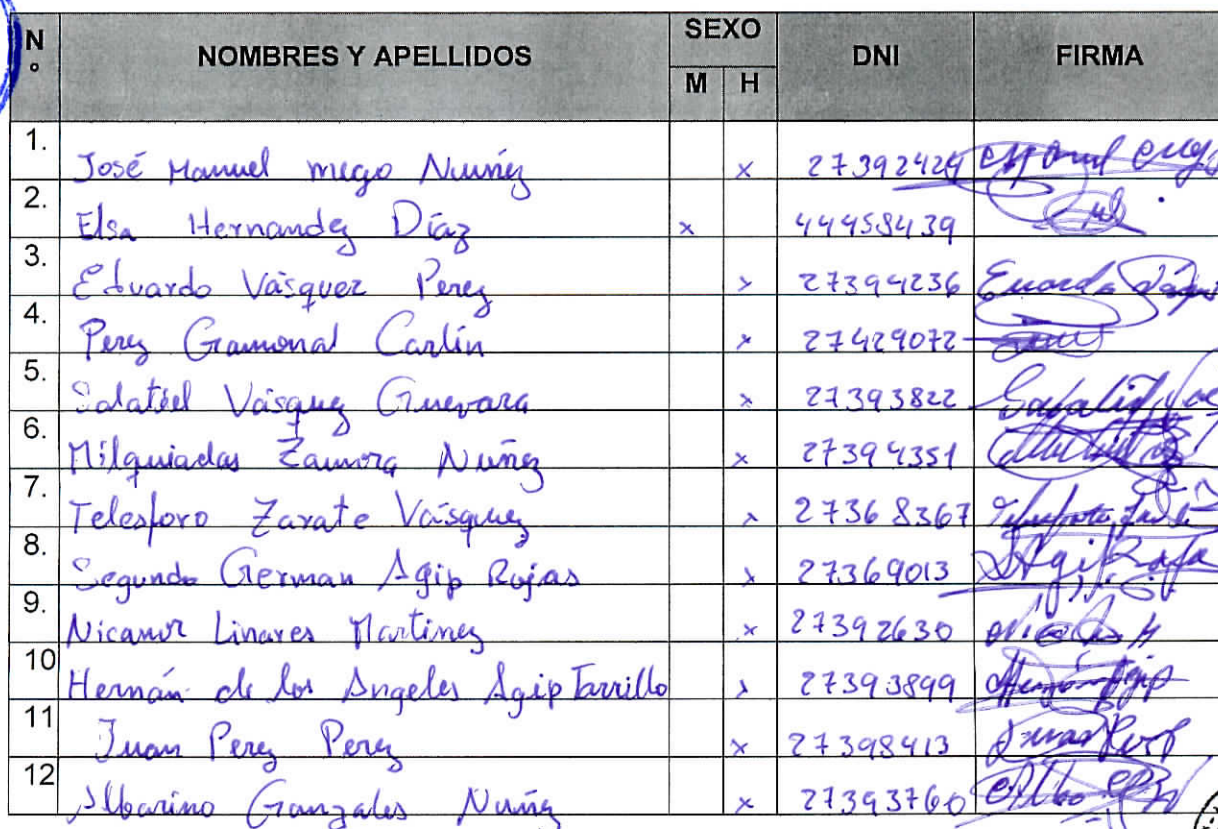 N° NOMBRES Y APELLIDOS SEXO DNI FIRMA
M H
1. José Manuel mego Nuuñez x 27392424
2. Elsa Hernandez Díaz x 44458439
3. Eduardo Vásquez Perez x 27394236
4. Perez Gamonal Carlín x 27429072
5. Salatiel Vásquez Guevara x 27393822
6. Milquiades Zamora Nuñez x 27394351
7. Telesforo Zarate Vásquez x 27368367
8. Segundo German Agip Rojas x 27369013
9. Nicanor Linares Martinez x 27392630
10 Hernán de los Angeles Agip Tarrillo x 27393899
11 Juan Perez Perez x 27398413
12 Albarino Gonzales Nuñez x 27393760